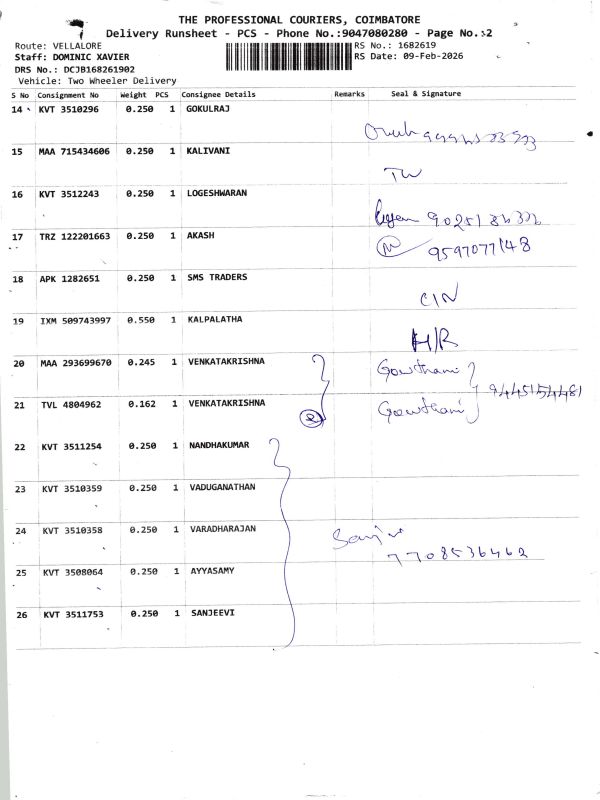 THE PROFESSIONAL COURIERS, COIMBATORE
Delivery Runsheet - PCS - Phone No.:9047080280 - Page No.:2
Route: VELLALORE RS No.: 1682619
Staff: DOMINIC XAVIER RS Date: 09-Feb-2026
DRS No.: DCJB168261902
Vehicle: Two Wheeler Delivery
S No Consignment No Weight PCS Consignee Details Remarks Seal & Signature
14 KVT 3510296 0.250 1 GOKULRAJ
15 MAA 715434606 0.250 1 KALIVANI
16 KVT 3512243 0.250 1 LOGESHWARAN
17 TRZ 122201663 0.250 1 AKASH 9597077148
18 APK 1282651 0.250 1 SMS TRADERS
C/N
19 IXM 509743997 0.550 1 KALPALATHA
H/R
20 MAA 293699670 0.245 1 VENKATAKRISHNA Gowthami 9445154481
21 TVL 4804962 0.162 1 VENKATAKRISHNA Gowthami
2
22 KVT 3511254 0.250 1 NANDHAKUMAR
23 KVT 3510359 0.250 1 VADUGANATHAN
24 KVT 3510358 0.250 1 VARADHARAJAN
7708536462
25 KVT 3508064 0.250 1 AYYASAMY
26 KVT 3511753 0.250 1 SANJEEVI